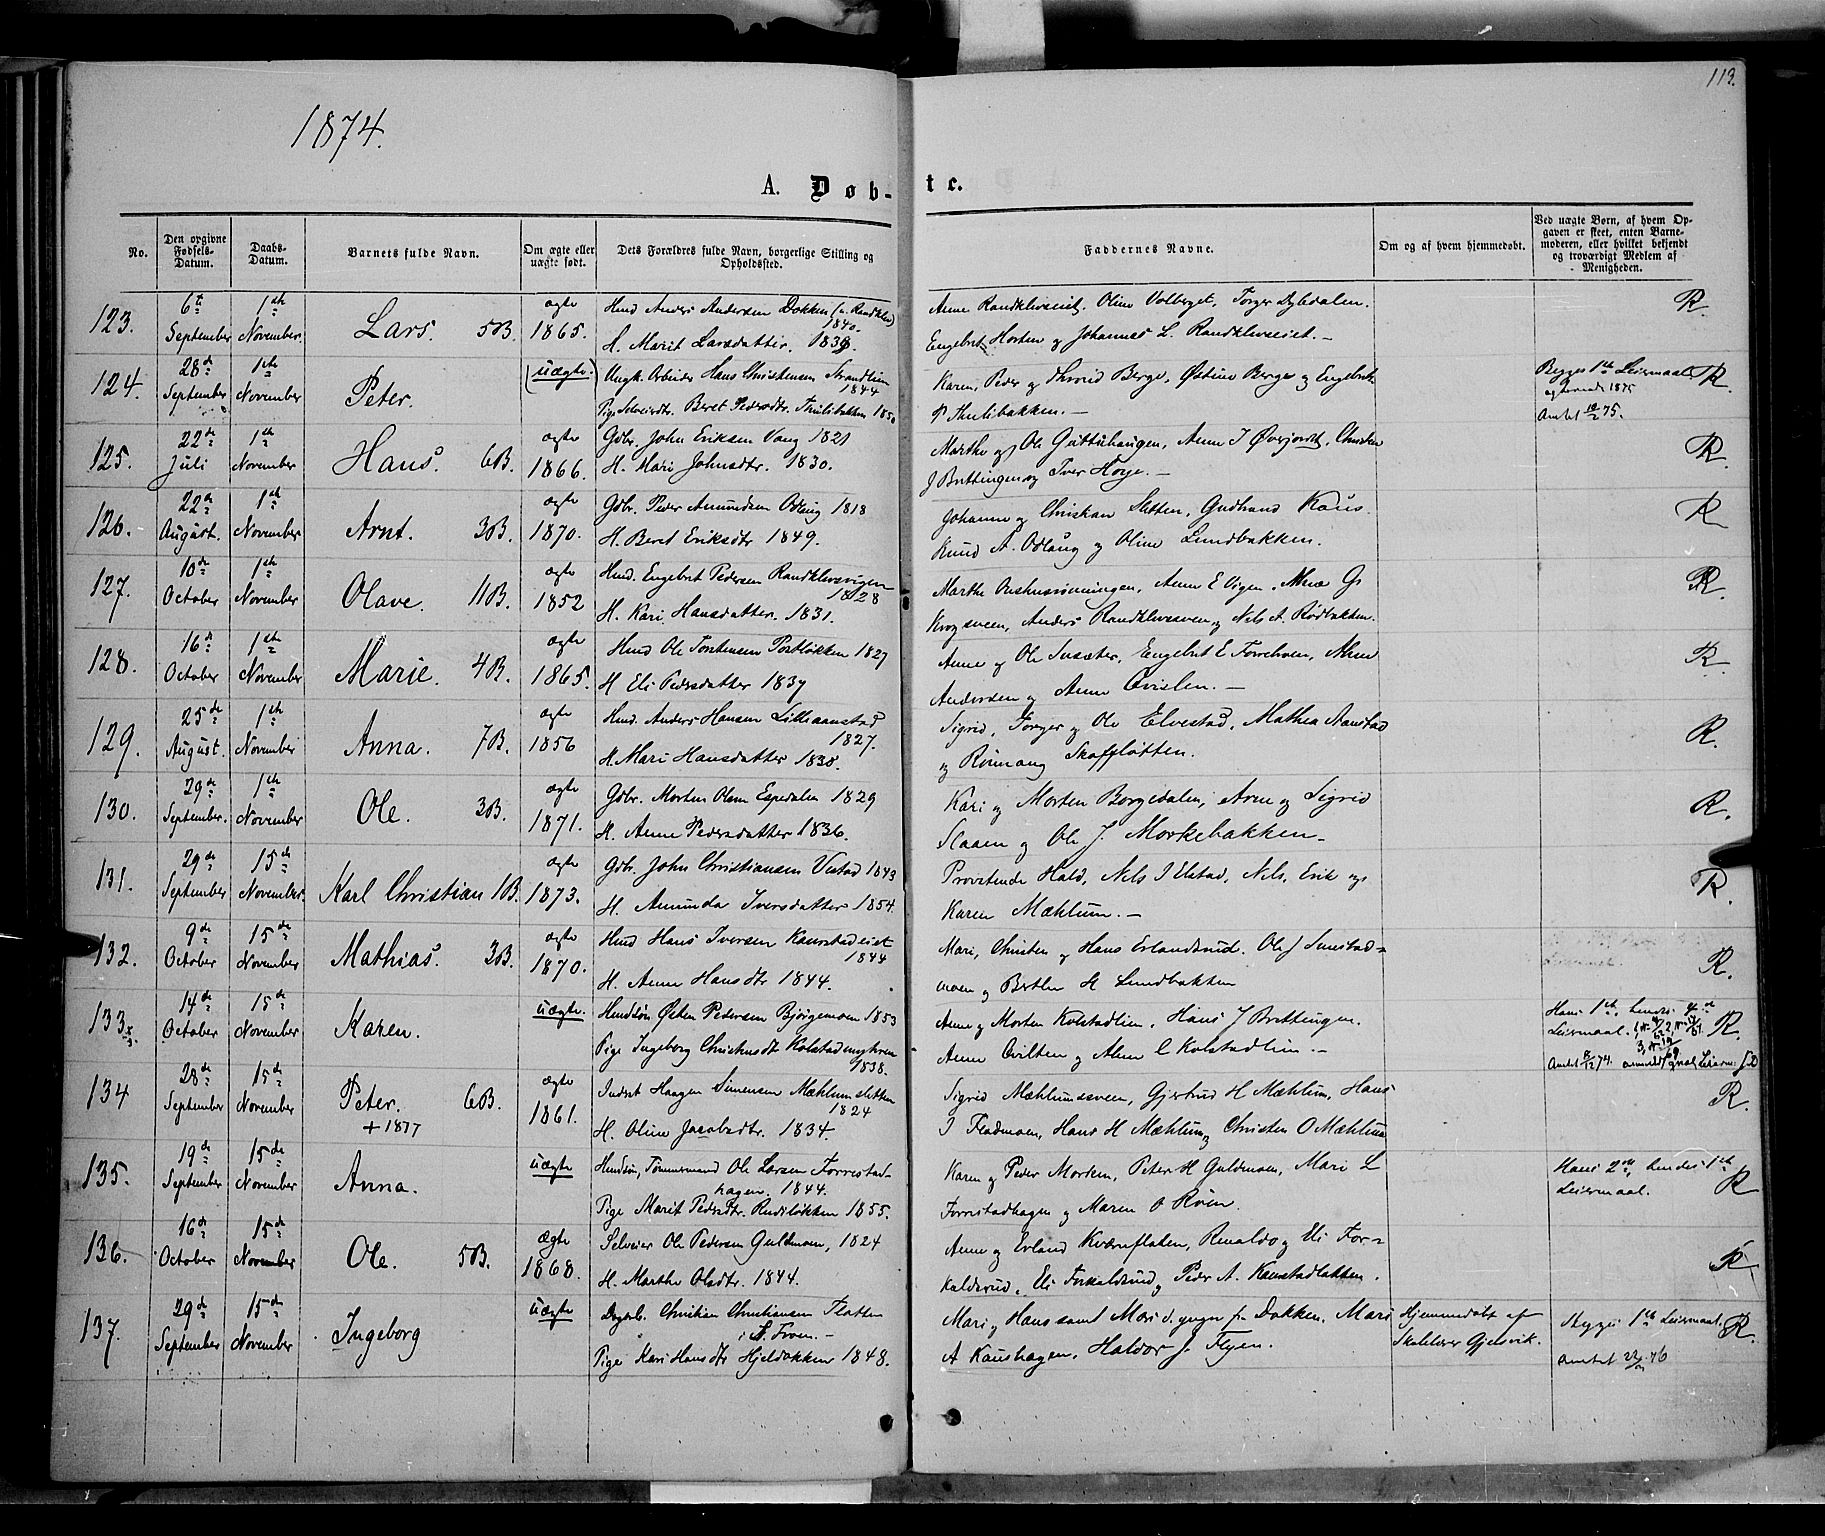 113.
1874.
A. Døb- te.
No.
Den opgivne Fødsels-Datum.
Daabs-Datum.
Barnets fulde Navn.
Om ægte eller uægte født.
Dets Forældres fulde Navn, borgerlige Stilling og Opholdssted.
Faddernes Navne.
Om og af hvem hjemmedøbt.
Ved uægte Børn, af hvem Opgaven er skeet, enten Barnemoderen, eller hvilket bekjendt og troværdigt Medlem af Menigheden.
123. 6te September 1ste November. Lars. 5B. ægte 1865.
Husmd Anders Andersen Dokken 1840.
H. Marit Larsdatter. 1839.
Anne Randkleveiet, Oline Volberget, Torger Dybdalen.
Engebret Horten og Johannes L. Randkleveiet. — R.
124. 28de September 1ste November Peter. (uægte)
Ungk. Arbeider Hans Christensen Strandlien 1844
Pige Selveierdtr. Beret Pedersdtr. Thulibakken 1850
Karen, Peder og Berge, Østine Berge og Engebret
P Thulibakken. —
Begges 1ste Leiermaal
1875
Amtet 75. R.
125. 22de Juli 1ste November Hans. 6B. ægte 1866.
Gdbr. John Eriksen Vang 1821
H. Mari Johnsdtr. 1830.
Marthe og Ole Guttuhaugen, Anne J Øverjordet, Christen
J Brettingen og Iver Horge. — R.
126. 22de August. 1ste November Arnt. 3B. ægte 1870.
Gdbr. Peder Amundsen Odlaug 1818
H. Beret Eriksdtr 1849.
Johanne og Christian Sletten, Gudbrand Kaus.
Knud A. Odlaug og Oline Lundbakken. R
127. 10de October 1ste November Olave. 11B. ægte 1852
Husmd. Engebret Pedersen Randklevsvigen 1828
H. Kari Hansdatter. 1831.
Marthe Aushusrønningen, Anne E Vigen, Anne G
Krogsveen, Anders Randklevesveen og Nels A. Rødbakken. R.
128. 16de October 1ste November Marie. 4B. ægte 1865.
Husmd Ole Torstensen Postløkken 1827
H Eli Pedersdatter 1837
Anne og Ole Svesæter, Engebret E Forrehoven, Anne
Andersen og Anne Qvislen. — R
129. 25de August. 1ste November Anna. 7B. ægte 1856
Husmd. Anders Hansen Lilleaanstad 1827.
H. Mari Hansdatter 1838.
Sigrid, Torger og Ole Elvestad, Mathea Aanstad
og Rønnaug Skafsløtten. R.
130. 29de September. 1ste November Ole. 3B. ægte 1871.
Gdbr. Morten Olsen Espedalen 1829
H. Anne Pedersdatter 1836.
Kari og Morten Borgedalen, Arne og Sigrid
Slaaen og Ole J. Morkebakken — R.
131. 29de September 15de November. Karl Christian 1B. ægte 1873.
Gdbr. John Christiansen Vistad 1843
H. Amunda Iversdatter 1854.
Provstinde Hald, Nels J Ulstad, Nels, Erik og
Karen Mæhlum. — R.
132. 9de October 15de November Mathias. 3B. ægte 1870.
Husmd Hans Iversen Kaurstadeiet 1844
H. Anne Hansdtr 1844.
Mari, Christen og Hans Erlandsrud. Ole J Sunstad-
moen og Berthe H Lundbakken R.
133. 14de October 15de November Karen. uægte.
Husmdsøn Østen Pedersen Bjørgemoen 1853
Pige Ingeborg Christensdtr Kolstadmyhren 1838.
Anne og Morten Kolstadlien, Hans J Brettingen.
Anne Qvilten og Anne C Kolstadlien. —
Hans 1ste, hendes
Leiermaal.
Amtet 74. R.
134 28de September 15de November Peter. 6B. + 1877 ægte 1861.
Inderst Haagen Simensen Mæhlumsletten 1824
H. Oline Jacobsdtr. 1834.
Sigrid Mæhlumsveen, Gjertrud H Mæhlum, Hans
J Fladmoen, Hans H Mæhlum, Christen O Mæhlum R.
135. 19de September 15de November Anna. uægte
Husmdsøn, Tømmermand Ole Larsen Forrestad-
hagen. 1844.
Pige Marit Pedersdtr. Rudiløkken 1855.
Karen og Peder Morken, Peter H Guldmoen, Mari L
Forrestadhagen og Maren O Røien.
Hans 2det, hendes 1ste
Leiermaal. R
136 16de October 15de November Ole. 5B. ægte 1868.
Selveier Ole Pedersen Guldmoen, 1824
H. Marthe Olsdtr. 1844.
Anne og Erland Kværnflaten, Renaldo og Eli For-
kalsrud, Eli Forkalsrud og Peder A. Kaustadløkken. R
137. 29de September 15de November Ingeborg uægte
Dagarb. Christian Christiansen Flatten
i S. Fron. —
Pige Kari Hansdtr Hjeldøkken 1848.
Mari og Hans samt Mari d. yngre fr. Dokken, Mari
A Kaushagen, Haldor J. Flyen.
Hjemmedøbt af
Skolelærer Gjelsvik.
Begges 1ste Leiermaal
amtet 76 R.